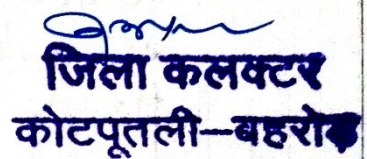 जिला कलक्टर
कोटपूतली—बहरोड